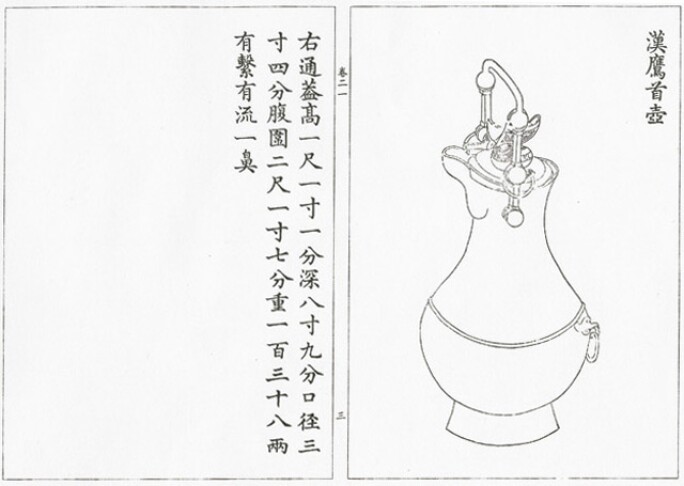 漢鷹首壺
卷二一
三
右通蓋高一尺一寸一分深八寸九分口徑三
寸四分腹圍二尺一寸七分重一百三十八兩
有繫有流一鼻